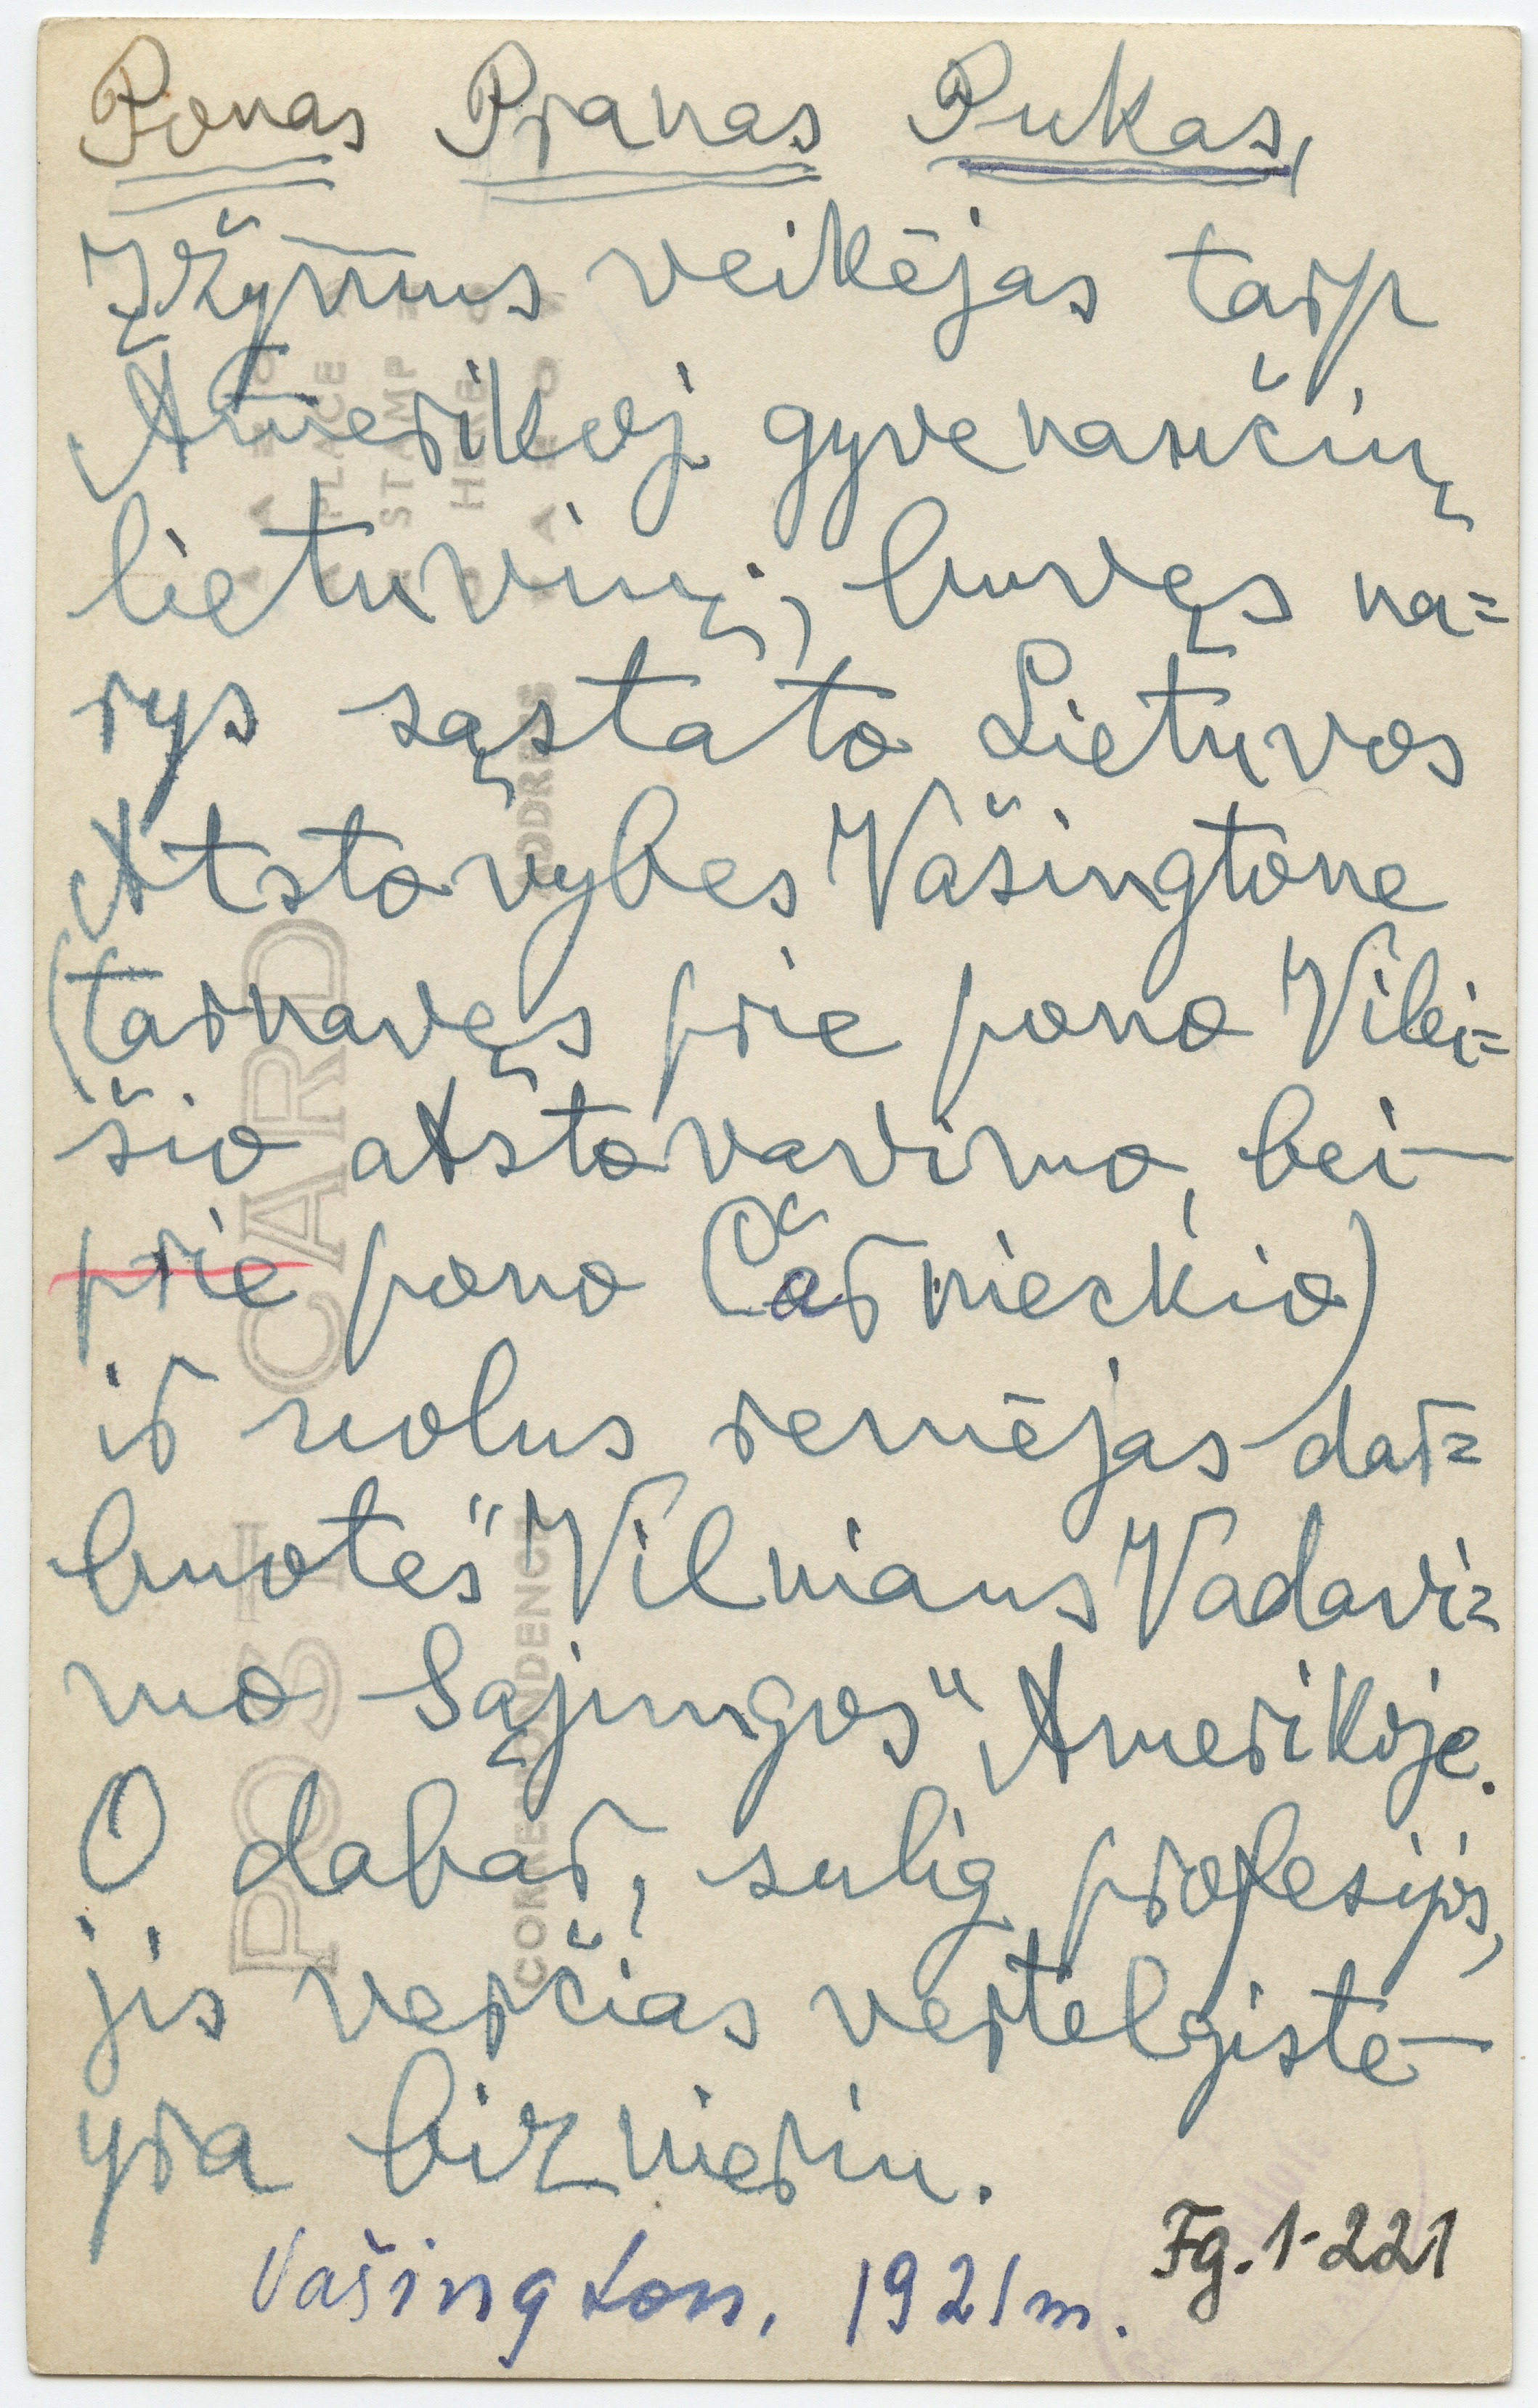 Ponas Pranas Pukas,
Įžymus veikėjas tarp
Amerikoj gyvenančių
lietuvių; buvęs na=
rys sąstato Lietuvos
Atstovybes Vašingtone
(tarnavęs prie pono Vilei=
šio atstovavimo, bei—
prie pono Čarnieckio)
ir uolus remėjas dar=
buotes "Vilniaus Vadavi=
mo Sąjungos" Amerikoje.
O dabar, sulig profesijos,
jis verčias vertelgiste—
yra biznieriu.
Vašington, 1921 m.
Fg. 1-221
POST CARD
CORRESPONDENCE
ADDRESS
PLACE
STAMP
HERE